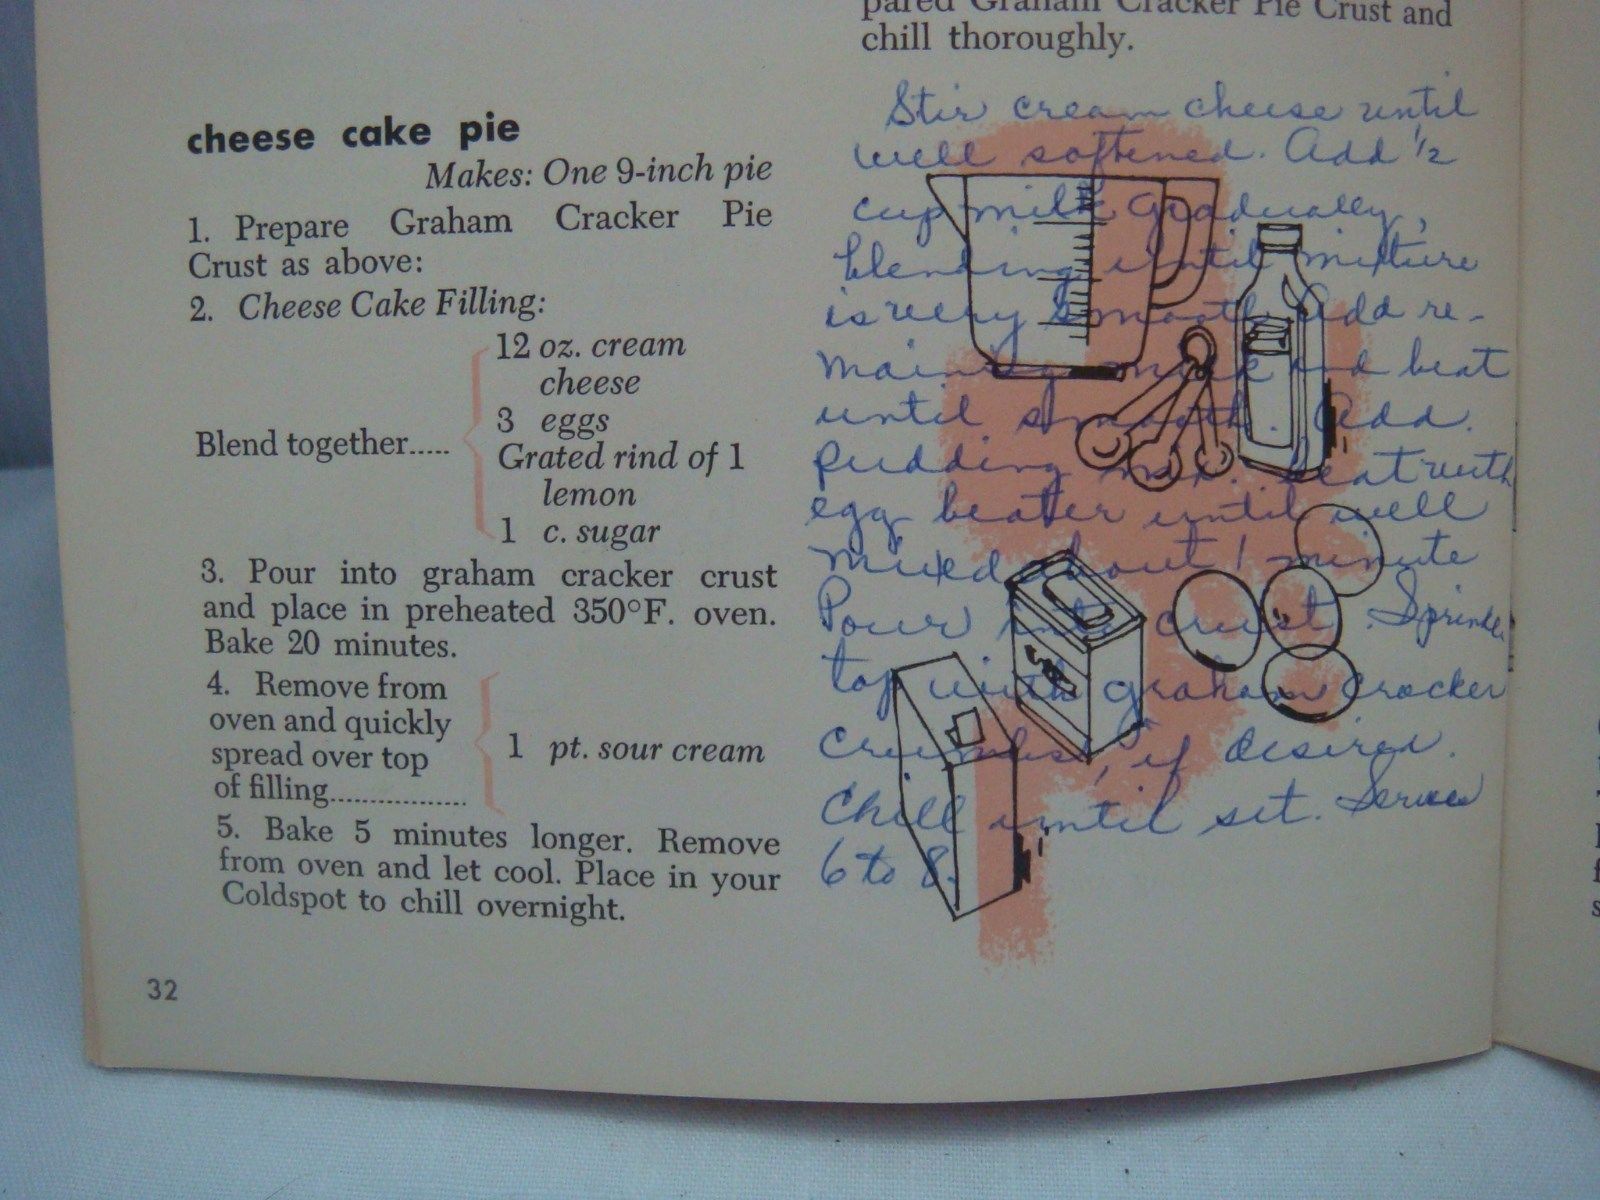 cheese cake pie
Makes: One 9-inch pie
1. Prepare Graham Cracker Pie
Crust as above:
2. Cheese Cake Filling:
12 oz. cream
cheese
3 eggs
Blend together.....
Grated rind of 1
lemon
1 c. sugar
3. Pour into graham cracker crust
and place in preheated 350°F. oven.
Bake 20 minutes.
4. Remove from
oven and quickly
spread over top
of filling.................
1 pt. sour cream
5. Bake 5 minutes longer. Remove
from oven and let cool. Place in your
Coldspot to chill overnight.
32
pared Graham Cracker Pie Crust and
chill thoroughly.
Stir cream cheese until
well softened. Add 1/2
cup milk gradually,
blending until mixture
is very smooth. Add re-
maining milk and beat
until smooth. Add.
pudding mix. Beat with
egg beater until well
mixed about 1 minute
Pour into crust. Sprinkle
top with graham cracker
crumbs, if desired.
Chill until set. Serves
6 to 8.